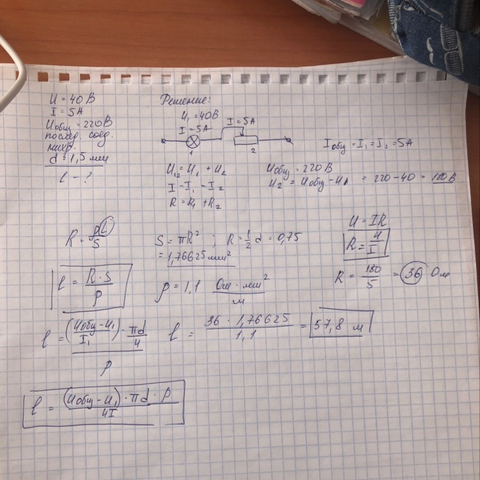 U = 40 В
I = 5А
Uобщ = 220В
послед. соед.
нихр.
d = 1,5 мм
l - ?
Решение:
U₁ = 40В
I = 5А
I = 5А
1
2
Iобщ = I₁ = I₂ = 5А
U₁₂ = U₁ + U₂
I = I₁ = I₂
R = R₁ + R₂
Uобщ = 220В
U₂ = Uобщ - U₁ = 220 - 40 = 180 В
R = ρl/S
S = πR² ; R = 1/2 d = 0,75
= 1,76625 мм²
U = IR
R = U/I
R = 180/5 = 36 Ом
l = R·S/ρ
ρ = 1,1 Ом·мм²/м
l = ((Uобщ - U₁)/I₁ · πd/4)/ρ
l = 36 · 1,76625/1,1 = 57,8 м
l = (Uобщ - U₁) · πd · ρ/4I